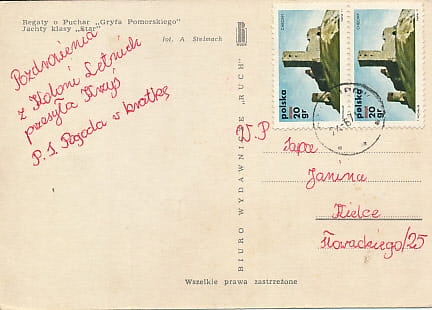 Regaty o Puchar „Gryfa Pomorskiego"
Jachty klasy „Star"
fot. A. Stelmach
Pozdrowienia
z Koloni Letnich
przesyła Krzyś
P.S. Pogoda w kratkę
BIURO WYDAWNICZE „RUCH"
CHĘCINY
polska
20
gr
CHĘCINY
polska
20
gr
W.P
Janina
Kielce
Słowackiego/25
Wszelkie prawa zastrzeżone